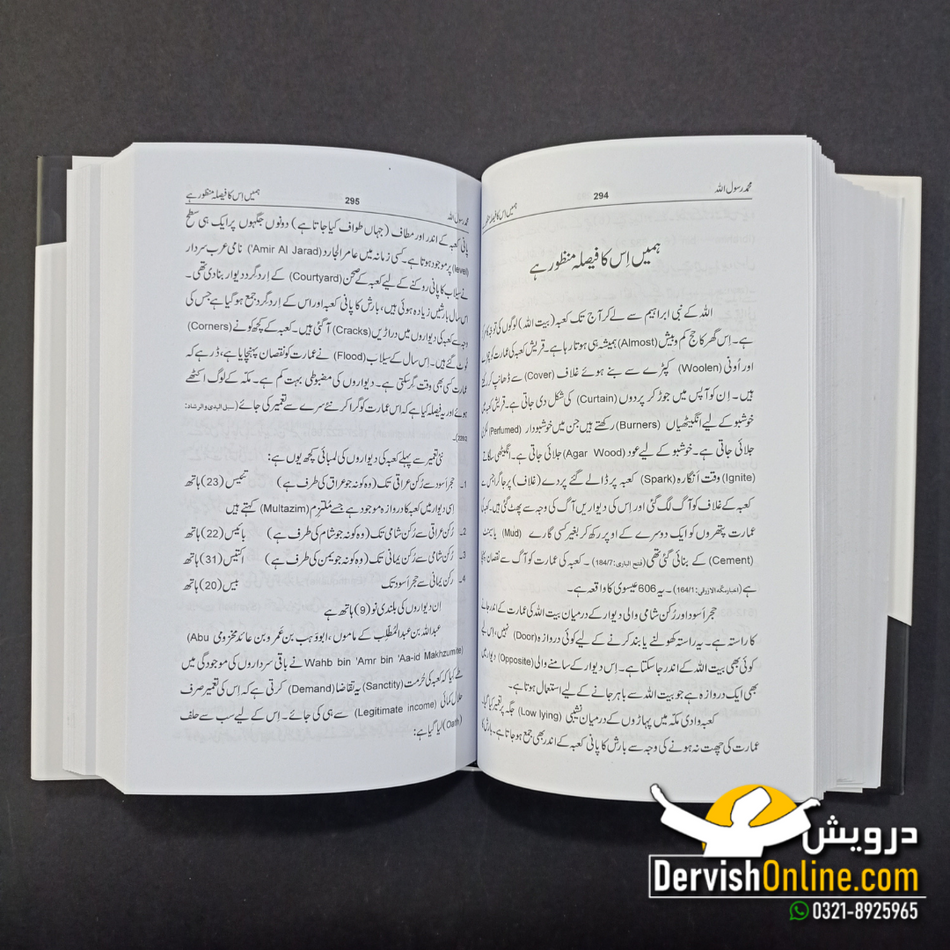 محمد رسول اللہ 294 ہمیں اِس کا فیصلہ منظور ہے
ہمیں اِس کا فیصلہ منظور ہے
اللہ کے نبی ابراہیم سے لے کر آج تک کعبہ (بیت اللہ) لوگوں کی توجہ کا
ہے۔ اِس گھر کا حج کم و بیش (Almost) ہمیشہ ہی ہوتا رہا ہے۔ قریش کعبہ کی عمارت کو
اور اُونی (Woolen) کپڑے سے بنے ہوئے غلاف (Cover) سے ڈھانپ کر رکھتے
ہیں۔ اِن کو آپس میں جوڑ کر پردوں (Curtain) کی شکل دی جاتی ہے۔ قریش کعبہ میں
خوشبو کے لیے انگیٹھیاں (Burners) رکھتے ہیں جن میں خوشبودار (Perfumed)
جلائی جاتی ہے۔ خوشبو کے لیے عود (Agar Wood) جلائی جاتی ہے۔ انگیٹھی سلگاتے
(Ignite) وقت اَنگارہ (Spark) کعبہ پر ڈالے گئے پردے (غلاف) پر جا گرا جس سے
کعبہ کے غلاف کو آگ لگ گئی اور اِس کی دیواریں آگ کی وجہ سے پھٹ گئی ہیں۔ کعبہ کی
عمارت پتھروں کو ایک دوسرے کے اوپر رکھ کر بغیر کسی گارے (Mud) یا سیمنٹ
(Cement) کے بنائی گئی تھی (فتح الباری: 184/7)۔ کعبہ کی عمارت کو آگ سے نقصان پہنچا
ہے (اخبار مکہ للازرقی: 164/1)۔ یہ 606 عیسوی کا واقعہ ہے۔
حجرِ اَسود اور رُکنِ شامی والی دیوار کے درمیان بیت اللہ کی عمارت کے اندر جانے
کا راستہ ہے۔ یہ راستہ کھولنے یا بند کرنے کے لیے کوئی دروازہ (Door) نہیں، اس لیے
کوئی بھی بیت اللہ کے اندر جا سکتا ہے۔ اِس دیوار کے سامنے والی (Opposite) دیوار میں
بھی ایک دروازہ ہے جو بیت اللہ سے باہر جانے کے لیے استعمال ہوتا ہے۔
کعبہ وادی مکّہ میں پہاڑوں کے درمیان نشیبی (Low lying) جگہ پر تعمیر کیا گیا۔
عمارت کی چھت نہ ہونے کی وجہ سے بارش کا پانی کعبہ کے اندر بھی جمع ہو جاتا ہے، بارش کا
محمد رسول اللہ 295 ہمیں اِس کا فیصلہ منظور ہے
پانی کعبہ کے اندر اور مطاف (جہاں طواف کیا جاتا ہے) دونوں جگہوں پر ایک ہی سطح
(level) پر موجود ہوتا ہے۔ کسی زمانہ میں عامر الجارد ('Amir Al Jarad) نامی عرب سردار
نے سیلاب کا پانی روکنے کے لیے کعبہ کے صحن (Courtyard) کے اِردگرد دیوار بنا دی تھی۔
اس سال بارشیں زیادہ ہوئی ہیں، بارش کا پانی کعبہ اور اس کے اِردگرد جمع ہو گیا ہے جس کی
وجہ سے کعبہ کی دیواروں میں دراڑیں (Cracks) آ گئی ہیں۔ کعبہ کے کچھ کونے (Corners)
ٹوٹ گئے ہیں۔ اِس سال کے سیلاب (Flood) نے عمارت کو نقصان پہنچایا ہے، ڈر ہے کہ
عمارت کسی بھی وقت گر سکتی ہے۔ دیواروں کی مضبوطی بہت کم ہے۔ مکّہ کے لوگ اکٹھے
ہوئے اور یہ فیصلہ کیا ہے کہ اس عمارت کو گرا کر نئے سرے سے تعمیر کی جائے (سبل الہدیٰ والرشاد:
نئی تعمیر سے پہلے کعبہ کی دیواروں کی لمبائی کچھ یوں ہے:
1۔ حجرِ اَسود سے رُکنِ عراقی تک (وہ کونہ جو عراق کی طرف ہے) تئیس (23) ہاتھ
اِسی دیوار میں کعبہ کا دروازہ موجود ہے جسے مُلتزم (Multazim) کہتے ہیں
2۔ رُکنِ عراقی سے رُکنِ شامی تک (وہ کونہ جو شام کی طرف ہے) بائیس (22) ہاتھ
3۔ رُکنِ شامی سے رُکنِ یمانی تک (وہ کونہ جو یمن کی طرف ہے) اکتیس (31) ہاتھ
4۔ رکنِ یمانی سے حجرِ اَسود تک بیس (20) ہاتھ
اِن دیواروں کی بلندی نو (9) ہاتھ ہے
عبداللہ بن عبدالمُطّلب کے ماموں، ابووَہب بن عَمرو بن عائد مخزومی (Abu
Wahb bin 'Amr bin 'Aa-id Makhzumite) نے باقی سرداروں کی موجودگی میں
طے کیا کہ کعبہ کی حُرمت (Sanctity) یہ تقاضا (Demand) کرتی ہے کہ اِس کی تعمیر صرف
حلال کمائی (Legitimate income) سے ہی کی جائے۔ اِس کے لیے سب سے حلف
(Oath) لیا گیا ہے:
درویش
DervishOnline.com
0321-8925965